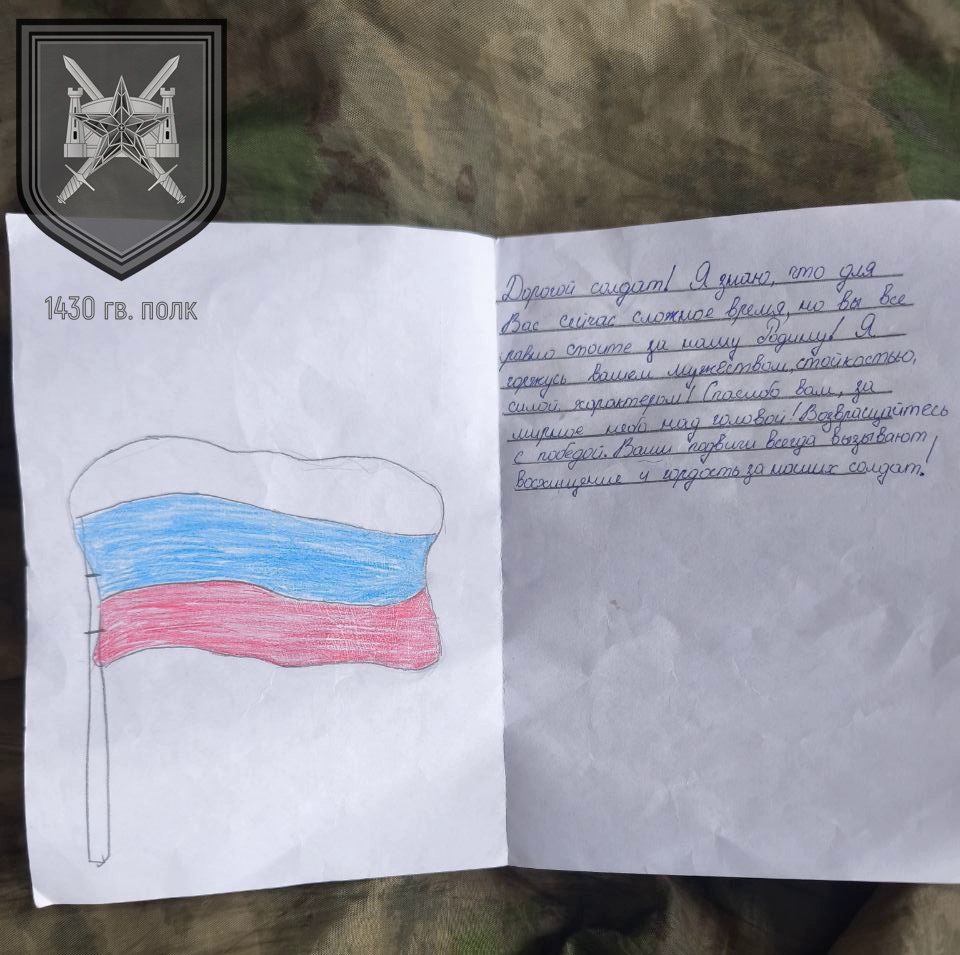 1430 гв. полк
Дорогой солдат! Я знаю, что для
Вас сейчас сложное время, но вы все
равно стоите за нашу Родину! Я
горжусь вашем мужеством, стойкостью,
силой характером! Спасибо вам, за
мирное небо над головой! Возвращайтесь
с победой. Ваши подвиги всегда вызывают
восхищение и гордость за наших солдат!